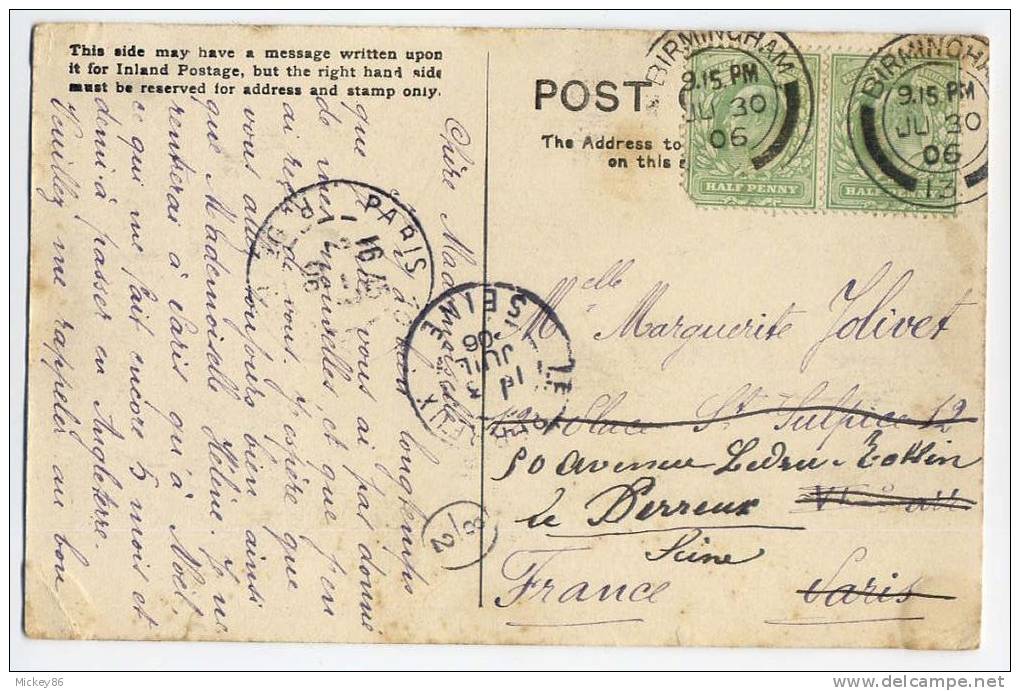 This side may have a message written upon
it for Inland Postage, but the right hand side
must be reserved for address and stamp only.
POST
The Address to
on this
BIRMINGHAM
9.15 PM
JU 30
06
HALF PENNY
BIRMINGHAM
9.15 PM
JU 30
06
13
HALF PENNY
Chère Mademoiselle
il y a longtemps
que je ne vous ai pas donné
de mes nouvelles et que j'en
ai reçu de vous. J'espère que
vous allez toujours bien ainsi
que Mademoiselle Hélène. Je ne
rentrerai à Paris qu'à Noël.
ce qui me fait encore 5 mois et
demi à passer en Angleterre.
Veuillez me rappeler au bon
PARIS
16
06
SEINE
JUIL
06
REUX
2/8
Melle Marguerite Jolivet
Place St Sulpice 12
50 avenue Ledru-Rollin
le Perreux
Seine
France
Paris
Mickey86
delcampe.net